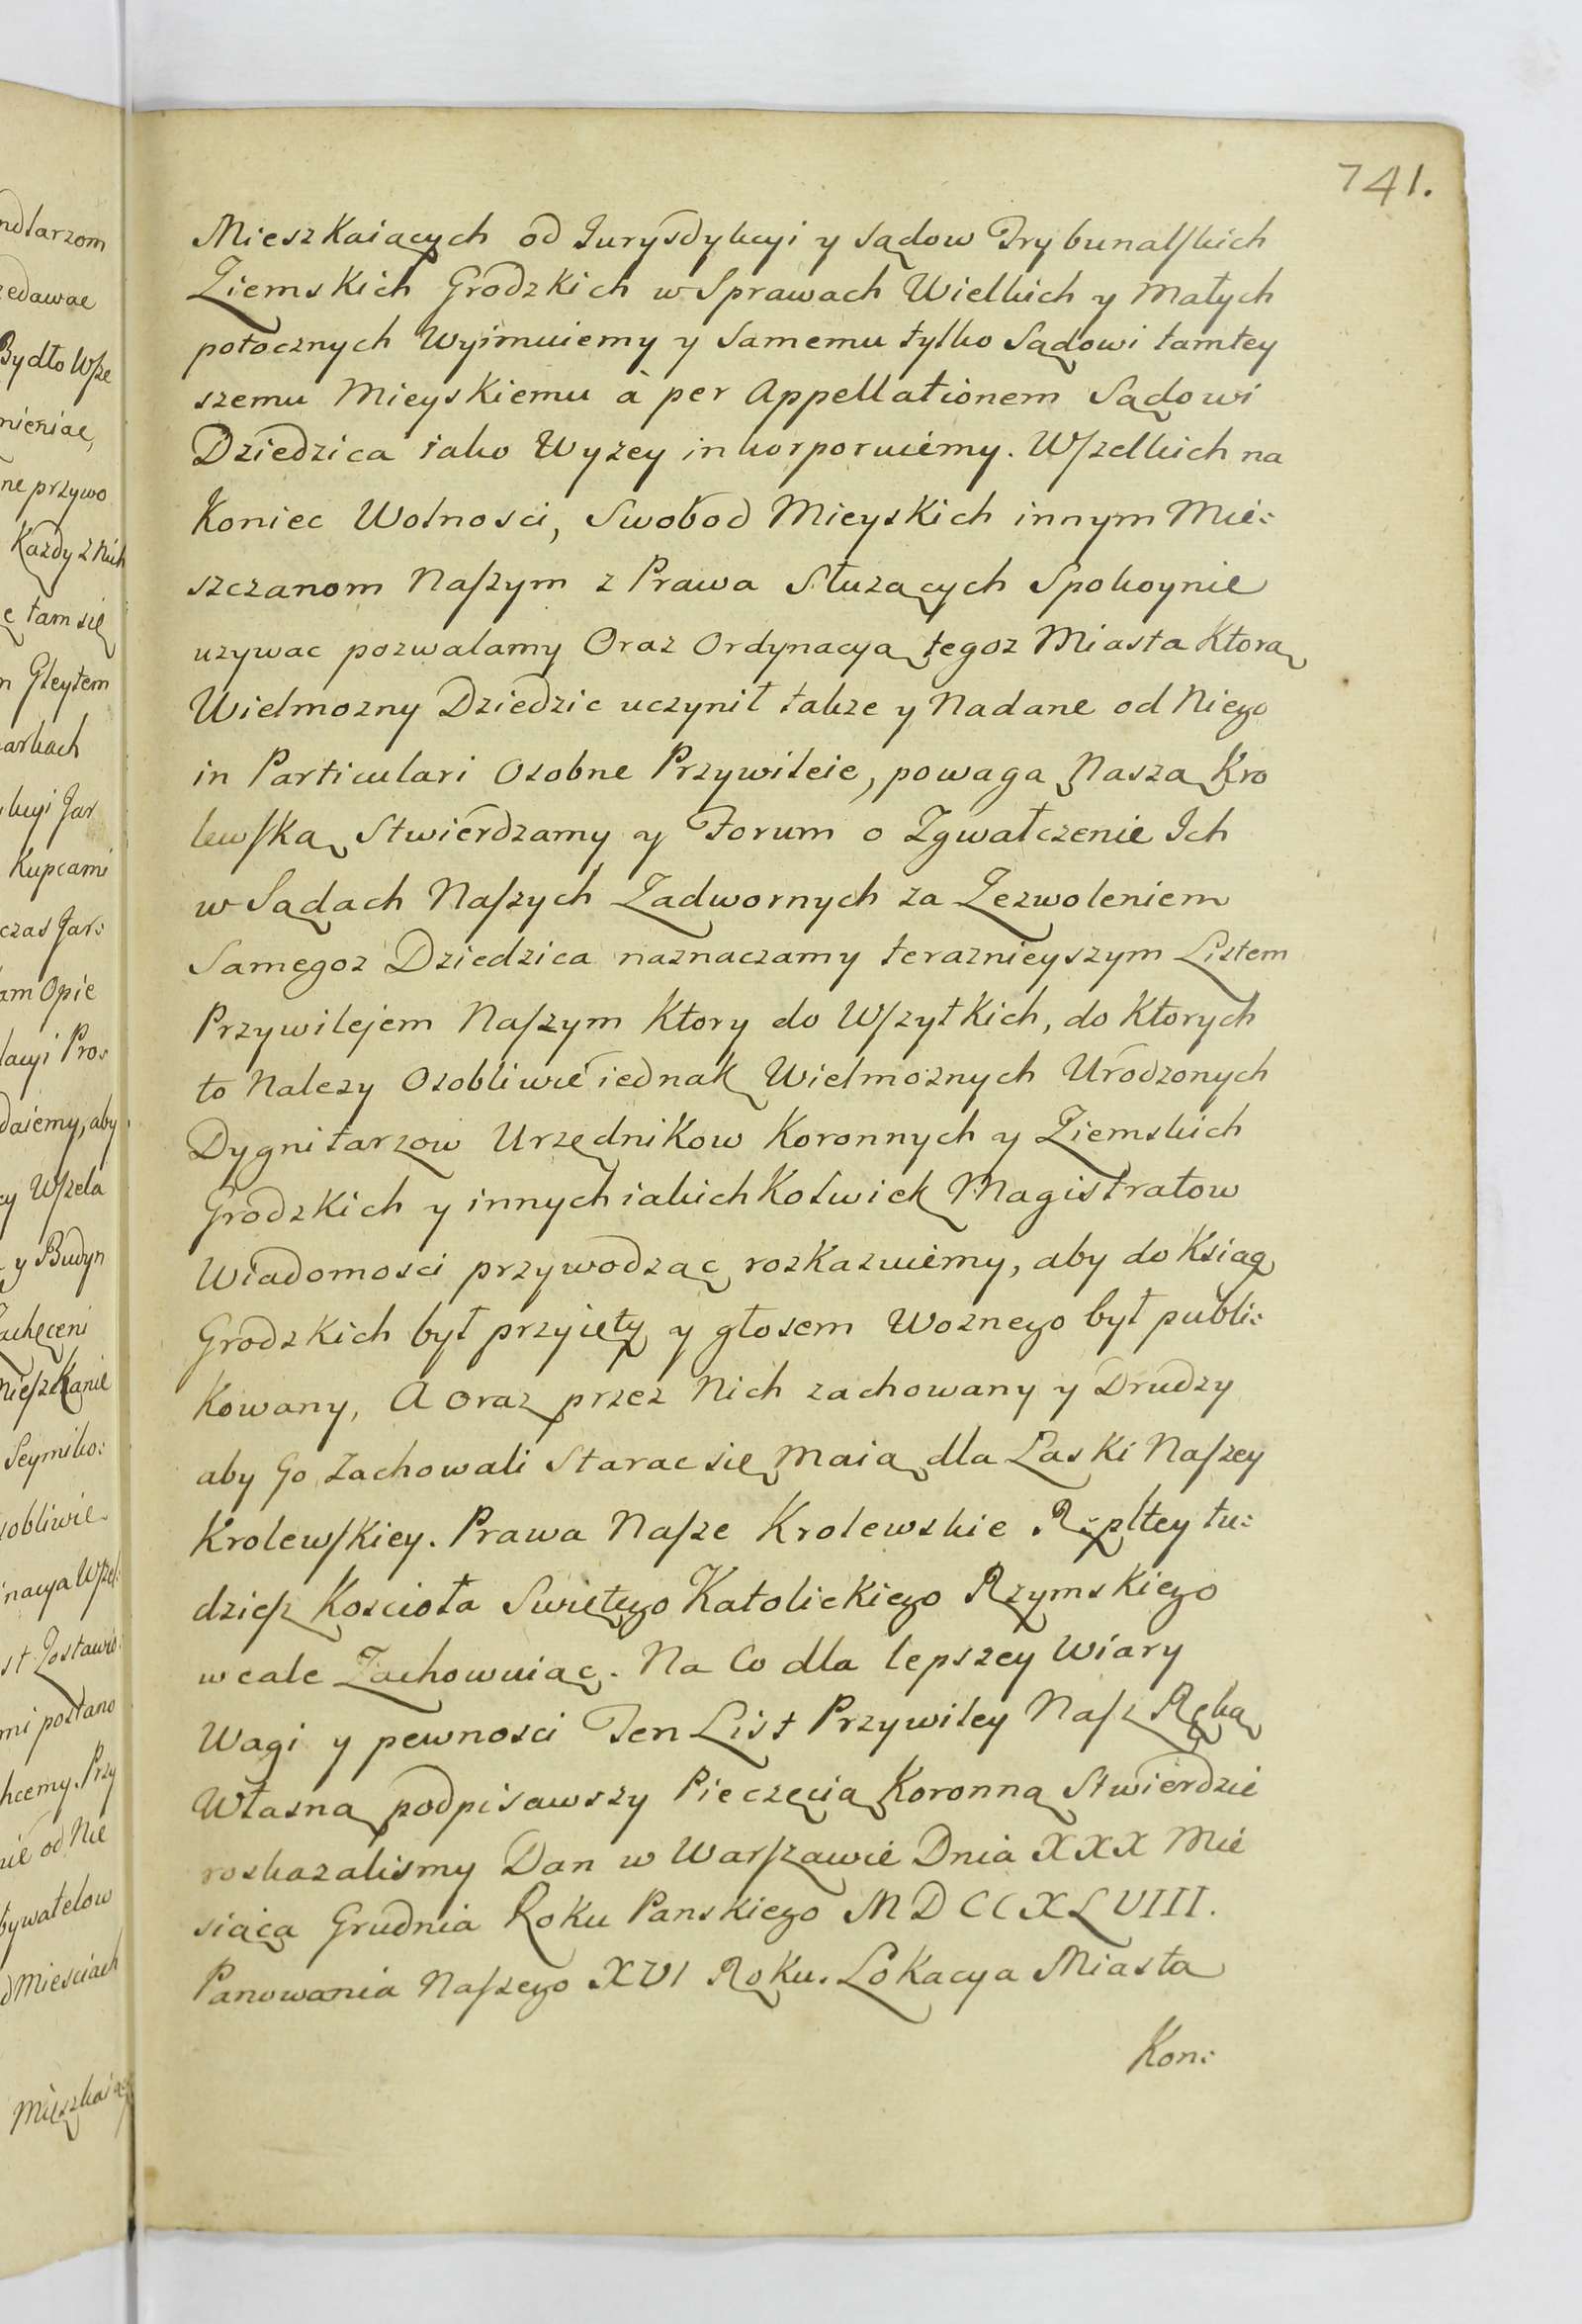 741.
Mieszkaiących od Jurysdykcyi y sądow Trybunalskich
Ziemskich Grodzkich w Sprawach Wielkich y Małych
potocznych Wyimuiemy y Samemu tylko Sądowi tamtey
szemu Mieyskiemu à per Appellationem Sądowi
Dziedzica iako Wyzey inkorporuiemy. Wszelkich na
Koniec Wolnosci, Swobod Mieyskich innym Mie:
szczanom Naszym z Prawa Słuzących Spokoynie
uzywac pozwalamy Oraz Ordynacyą tegoz Miasta Ktorą
Wielmozny Dziedzic uczynił takze y Nadane od Niego
in Particulari Osobne Przywileie, powagą Naszą Kro
lewską Stwierdzamy y Forum o Zgwałczenie Ich
w Sądach Naszych Zadwornych za Zezwoleniem
Samegoz Dziedzica naznaczamy teraznieyszym Listem
Przywilejem Naszym Ktory do Wszytkich, do Ktorych
to Nalezy Osobliwie iednak Wielmoznych Urodzonych
Dygnitarzow Urzędnikow Koronnych y Ziemskich
Grodzkich y innych iakichkolwiek Magistratow
Wiadomosci przywodząc rozkazuiemy, aby do Ksiąg
Grodzkich był przyięty y głosem Woznego był publi:
kowany, A oraz przez Nich zachowany y Drudzy
aby Go Zachowali Starac się Maią dla Łaski Naszey
Krolewskiey. Prawa Nasze Krolewskie Rzpltey tu:
dziesz Koscioła Swiętego Katolickiego Rzymskiego
wcale Zachowuiąc. Na Co dla lepszey Wiary
Wagi y pewnosci Ten List Przywiley Nasz Ręką
Własną podpisawszy Pieczęcią Koronną Stwierdzic
roskazalismy Dan w Warszawie Dnia XXX Mie
siąca Grudnia Roku Panskiego MDCCXLVIII.
Panowania Naszego XVI Roku. Lokacya Miasta
Kon:
ndlarzom
zedawac
Bydło Wsze
mieniac,
ne przywo
Kazdy z Nich
ę tam się
m Gleytem
arkach
Kupcami
czas Jar:
am Opie
lacyi Pros
daiemy, aby
cy Wszela
y Budyn
achęceni
mieszkanie
Seymiko:
sobliwie
st Zostawio
mi postano
hcemy. Przy
nie od Nie
bywatelow
d Miesciach
Mieszkaiąc